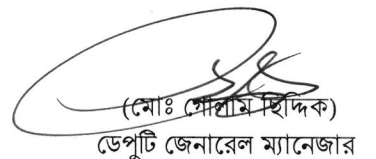 (মোঃ গোলাম ছিদ্দিক)
ডেপুটি জেনারেল ম্যানেজার